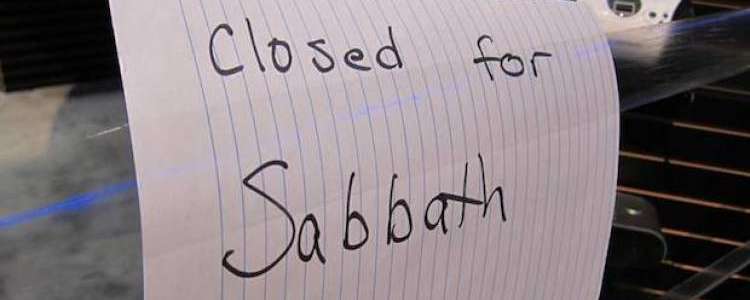 Closed for
Sabbath